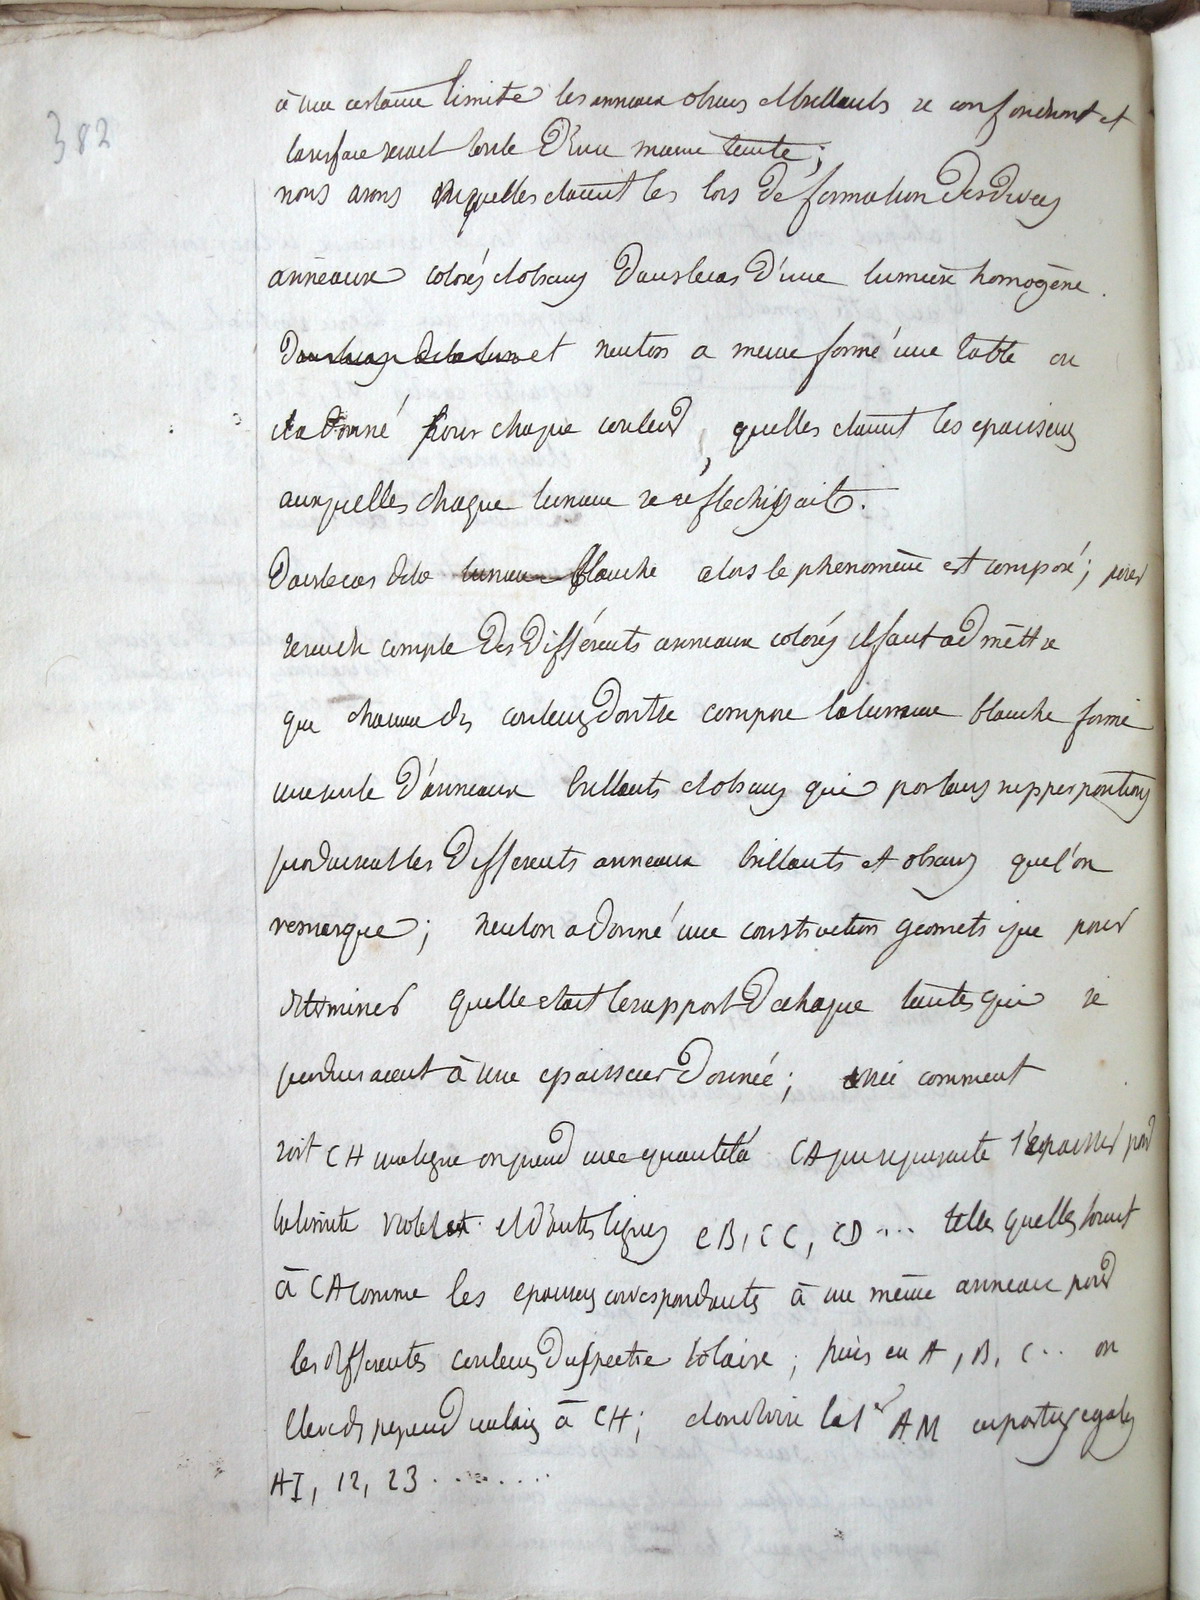 382
à une certaine limite les anneaux obscurs et brillants se confondront et
la surface serait toute d'une meme teinte;
nous avons vu quelles etaient les lois de formation des divers
anneaux colorés et obscurs dans le cas d'une lumière homogène.
dans le cas de la lum et neuton a meme formé une table ou
il a donné pour chaque couleur, quelles etaient les epaisseurs
auxquelles chaque lumiere se réflechissait.
Dans le cas de la lumiere blanche alors le phenomène est composé; pour
rendre compte des différents anneaux colorés il faut admèttre
que chacune des couleurs dont se compose la lumiere blanche forme
une suite d'anneaux brillants et obscurs qui par leurs supperpositions
produisent les differents anneaux brillants et obscurs que l'on
remarque; neuton a donné une construction geometrique pour
determiner quelle etait le rapport de chaque teintes qui se
produisaient à une epaisseur donnée; voici comment
soit CH une ligne on prend une quantité CA qui represente l'epaisseur pour
la limite violet et d'autres lignes CB, CC, CD ... telles quelles soient
à CA comme les epaisseurs correspondants à un mème anneau pour
les differentes couleurs du spectre solaire; puis en A, B, C .. on
eleve des perpendiculaires à CH; et on divise la 1er AM en parties egales
AI, 12, 23 ........